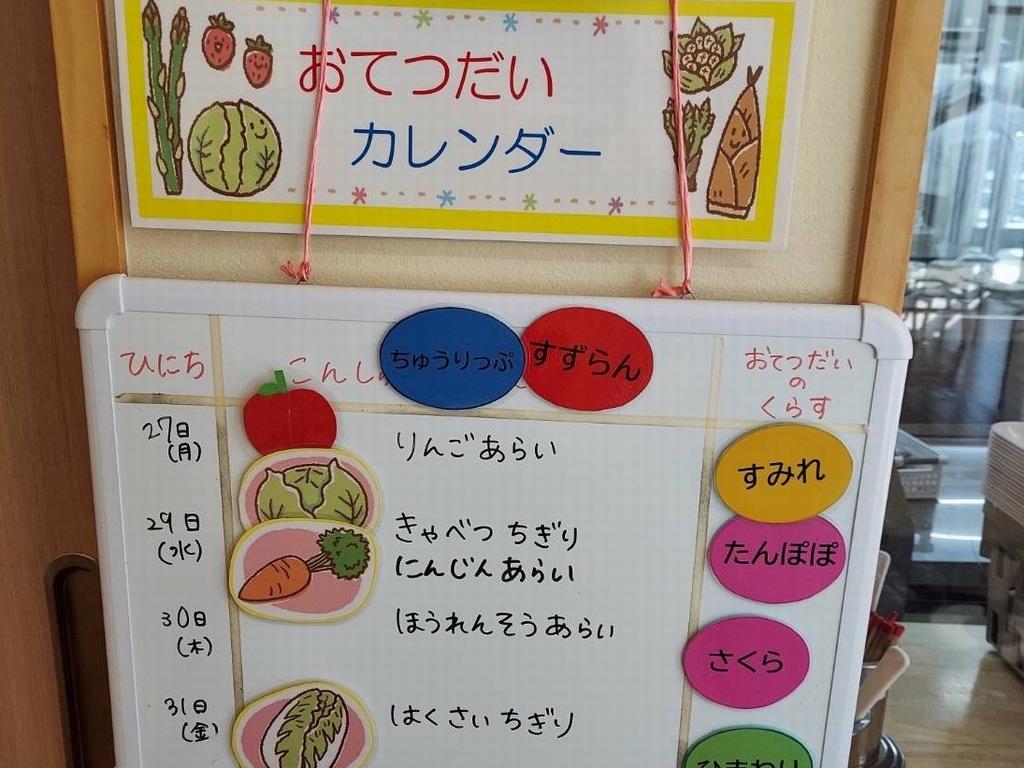 おてつだい
カレンダー
ちゅうりっぷ すずらん
ひにち
おてつだい
の
くらす
27日
(月)
りんごあらい
すみれ
29日
(水)
きゃべつ ちぎり
にんじんあらい
たんぽぽ
30日
(木)
ほうれんそうあらい
さくら
31日
(金)
はくさいちぎり
ひまわり